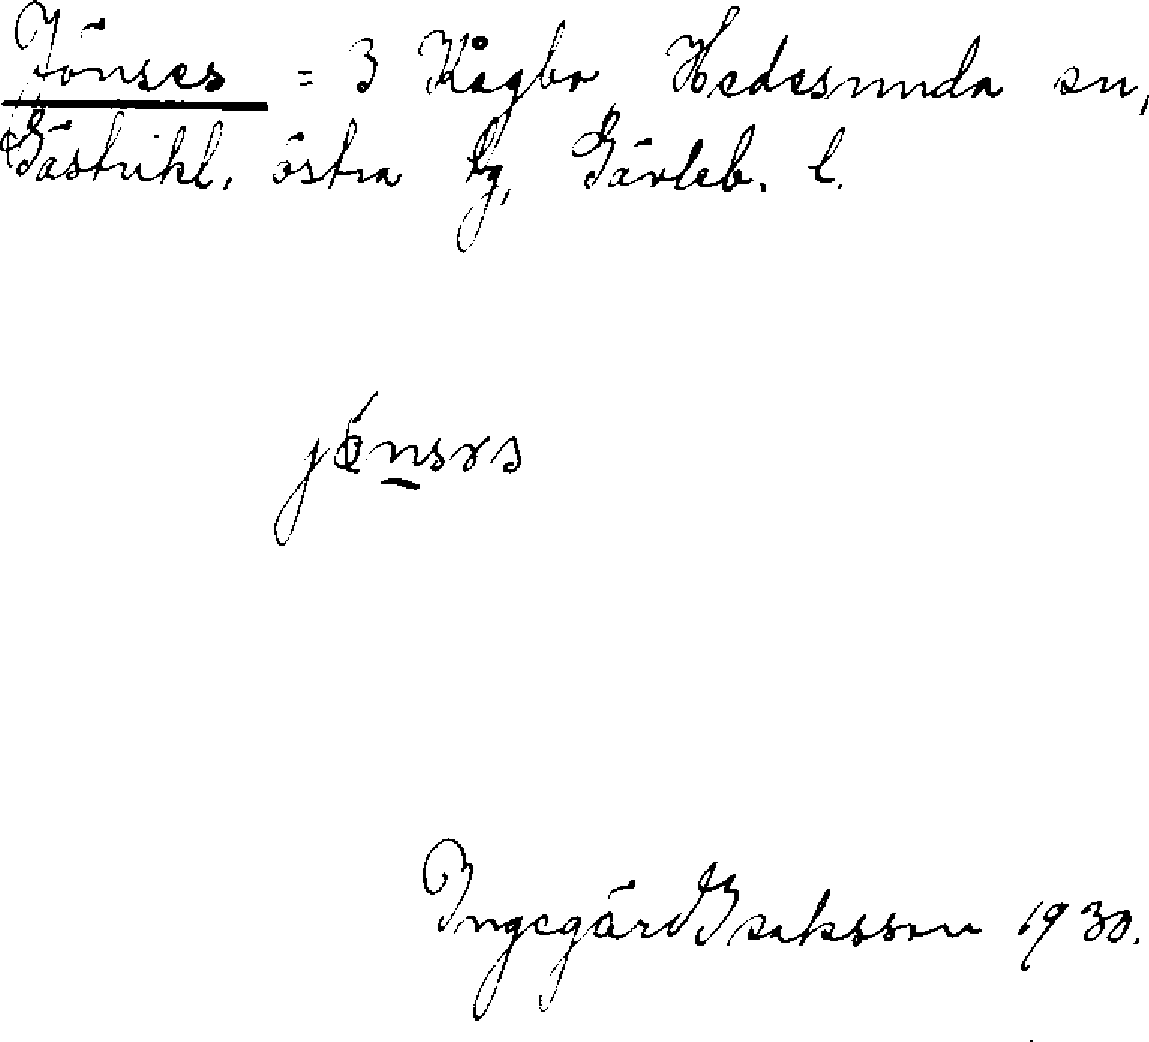 Jönses = 3 Kågbo, Hedesunda sn,
Gästrikl. östra tg, Gävleb. l.
jönsɤs
Ingegärd Isaksson 1930.